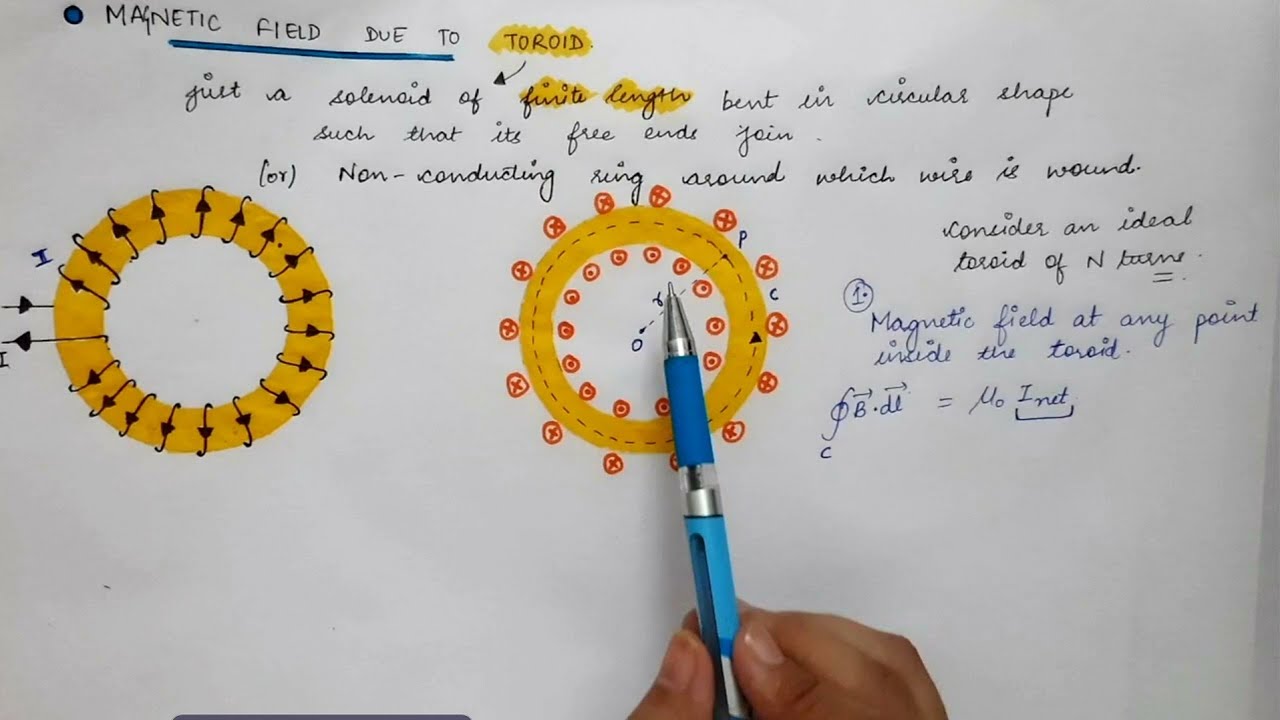 MAGNETIC FIELD DUE TO TOROID.
just a solenoid of finite length bent in circular shape
such that its free ends join.
(or) Non-conducting ring around which wire is wound.
I
I
P
C
r
O
consider an ideal
toroid of N turns.
1.
Magnetic field at any point
inside the toroid.
∮B⃗·dl⃗ = μ₀ Inet
C